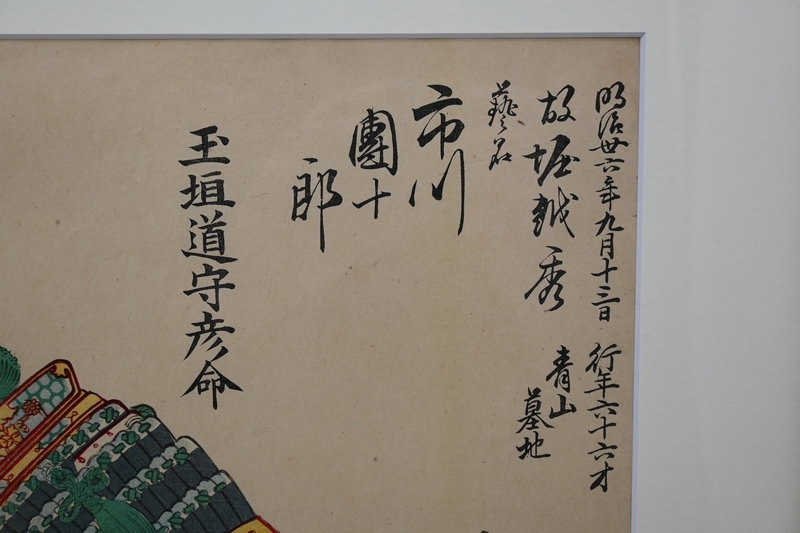 明治卅六年九月十三日 行年六十六才
故堀越秀
青山
墓地
藝名
市川
團十
郎
玉垣道守彦命